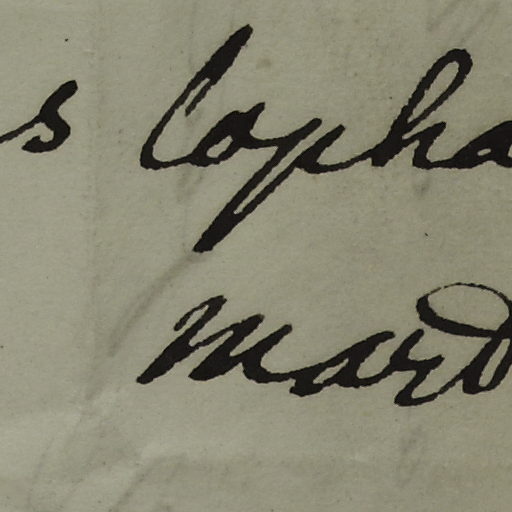 s Capha
Mard